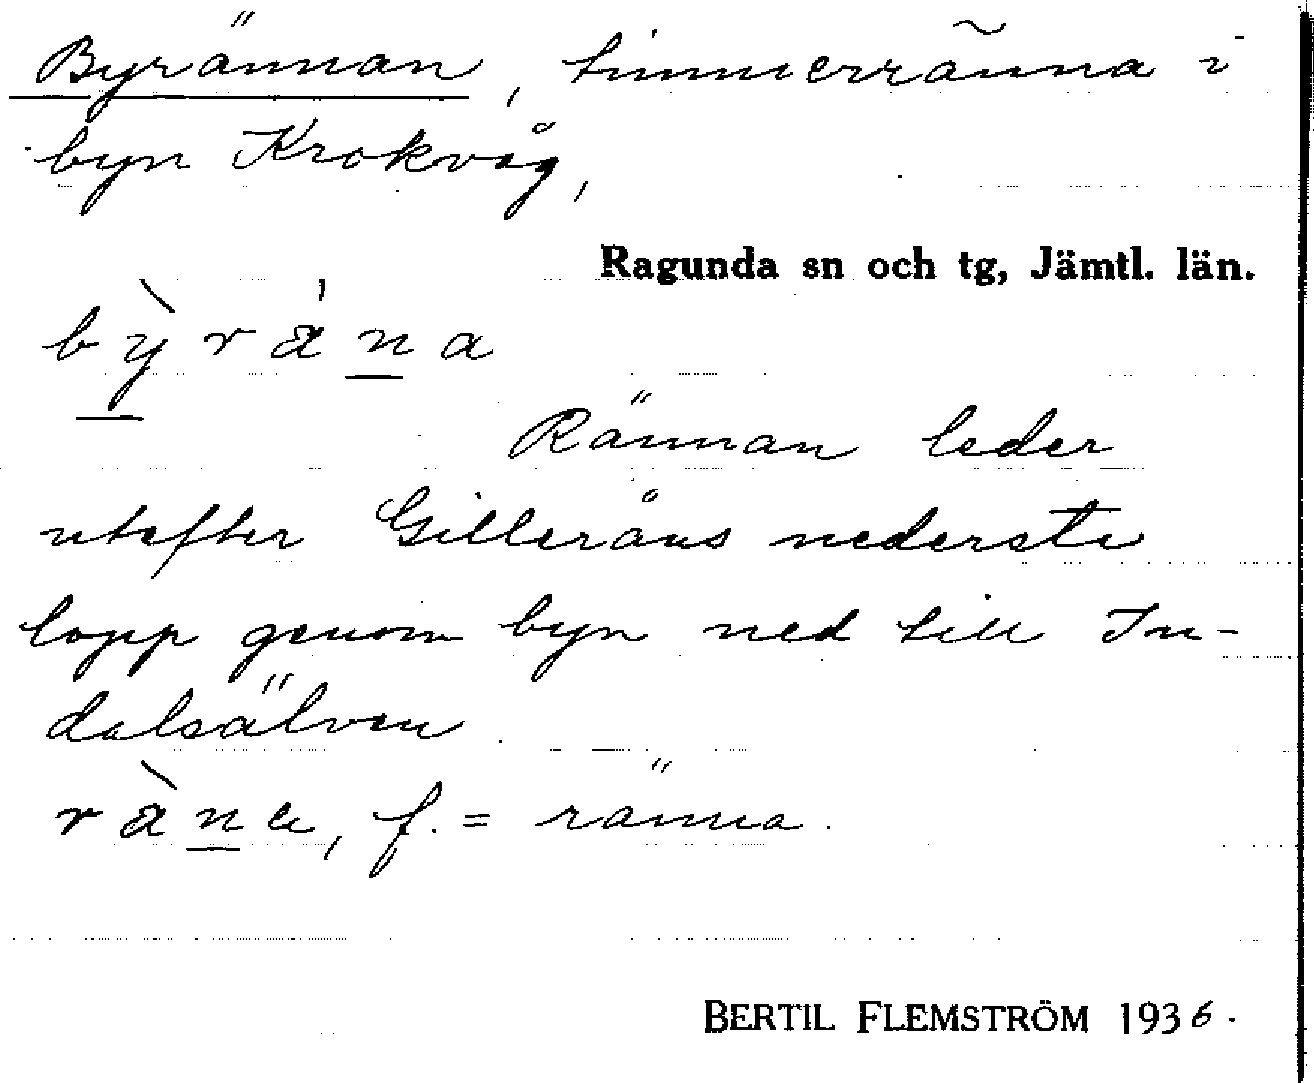 Byrännan, timmerränna i
byn Krokvåg,
Ragunda sn och tg, Jämtl. län.
bỳrána
Rännan leder
utefter Gilleråns nedersta
lopp genom byn ned till In-
dalsälven
ràna, f. = ränna.
BERTIL FLEMSTRÖM 1936.